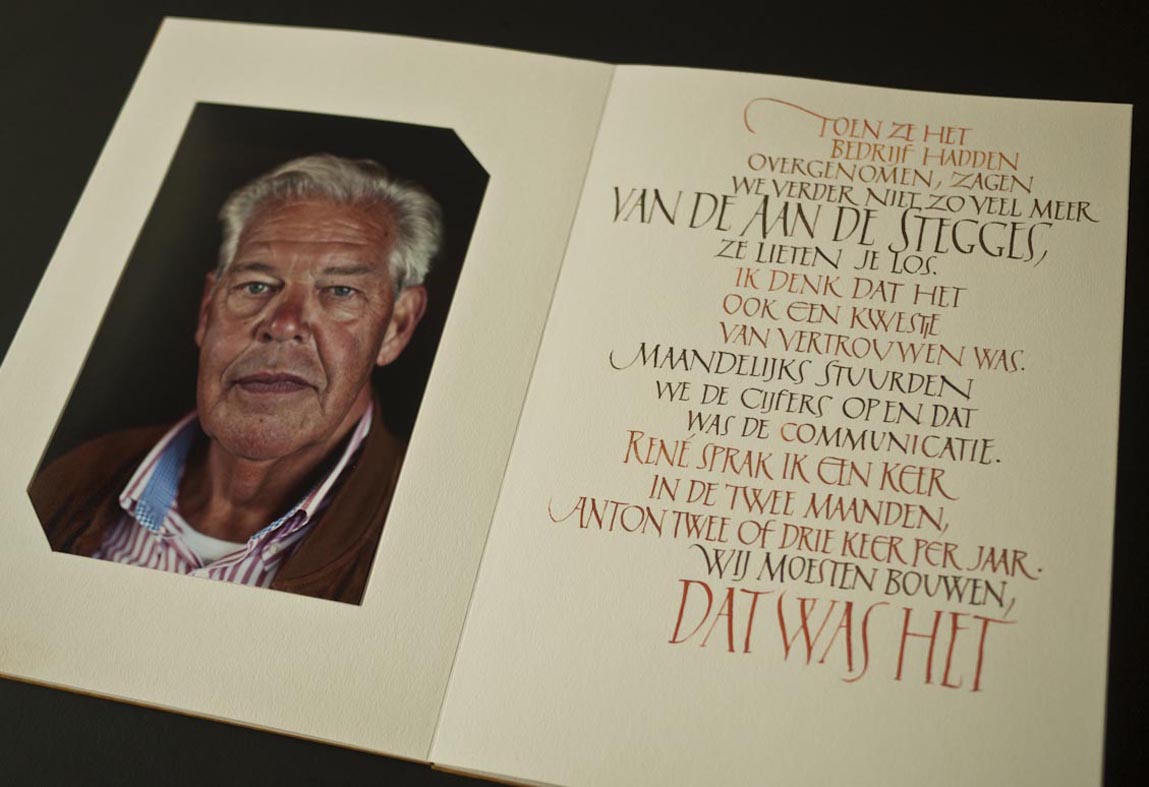 TOEN ZE HET
BEDRIJF HADDEN
OVERGENOMEN, ZAGEN
WE VERDER NIET ZO VEEL MEER
VAN DE AAN DE STEGGES,
ZE LIETEN JE LOS.
IK DENK DAT HET
OOK EEN KWESTIE
VAN VERTROUWEN WAS.
MAANDELIJKS STUURDEN
WE DE CIJFERS OP EN DAT
WAS DE COMMUNICATIE.
RENÉ SPRAK IK EEN KEER
IN DE TWEE MAANDEN,
ANTON TWEE OF DRIE KEER PER JAAR.
WIJ MOESTEN BOUWEN,
DAT WAS HET